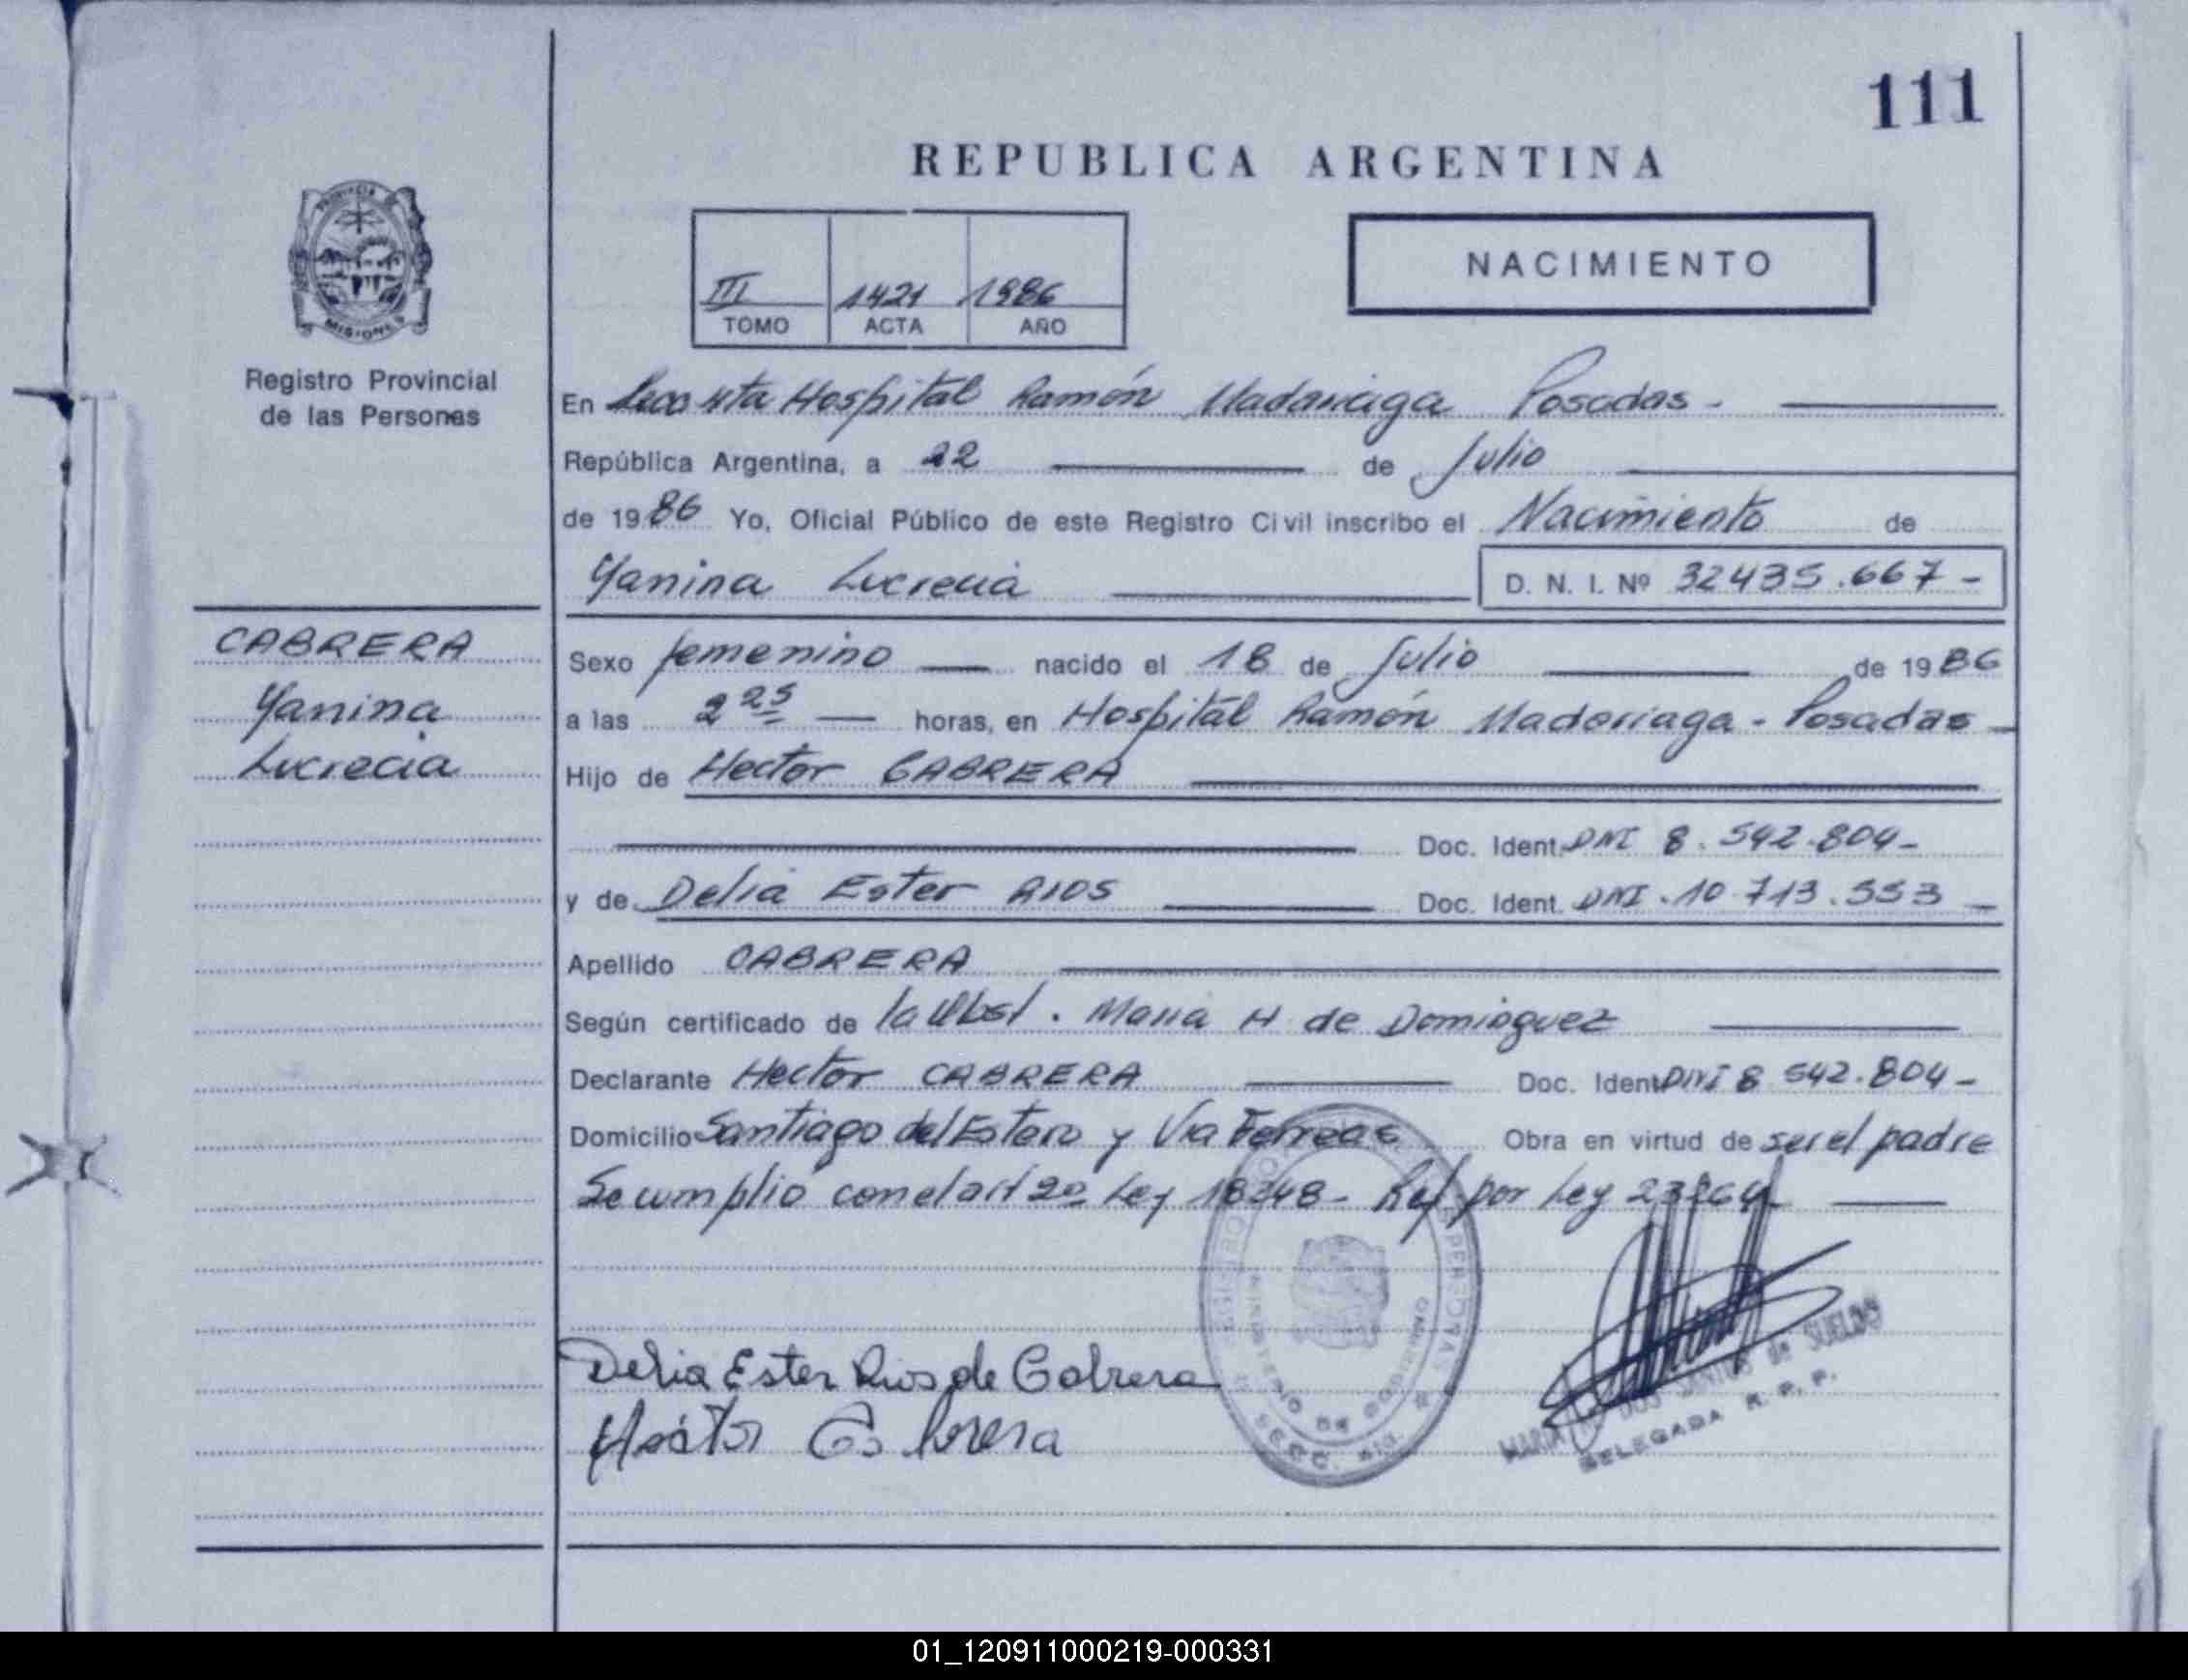 111
REPUBLICA ARGENTINA
PROVINCIA DE
MISIONES
Registro Provincial
de las Personas
III 1421 1986
TOMO ACTA AÑO
NACIMIENTO
En Hospital Ramón Madariaga Posadas.
República Argentina, a 22 de Julio
de 1986 Yo, Oficial Público de este Registro Civil inscribo el Nacimiento de
Yanina Lucrecia D. N. I. Nº 32435.667-
CABRERA
Yanina
Lucrecia
Sexo femenino nacido el 18 de Julio de 1986
a las 2 25 horas, en Hospital Ramón Madariaga - Posadas
Hijo de Hector CABRERA
Doc. Ident. DNI 8.542.804-
y de Delia Ester RIOS Doc. Ident. DNI.10 713.553
Apellido CABRERA
Según certificado de la Obst. Maria H de Dominguez
Declarante Hector CABRERA Doc. Ident DNI 8 542.804-
Domicilio Santiago del Estero y Via Ferreas Obra en virtud de ser el padre
Se cumplio con el art 2º Ley 18248- Ref por Ley 23264
Delia Ester Rios de Cabrera
Hector Cabrera
MINISTERIO DE GOBIERNO
SECC.
MARIA DOS SANTOS de SUELDO
DELEGADA R. P. P.
01_120911000219-000331